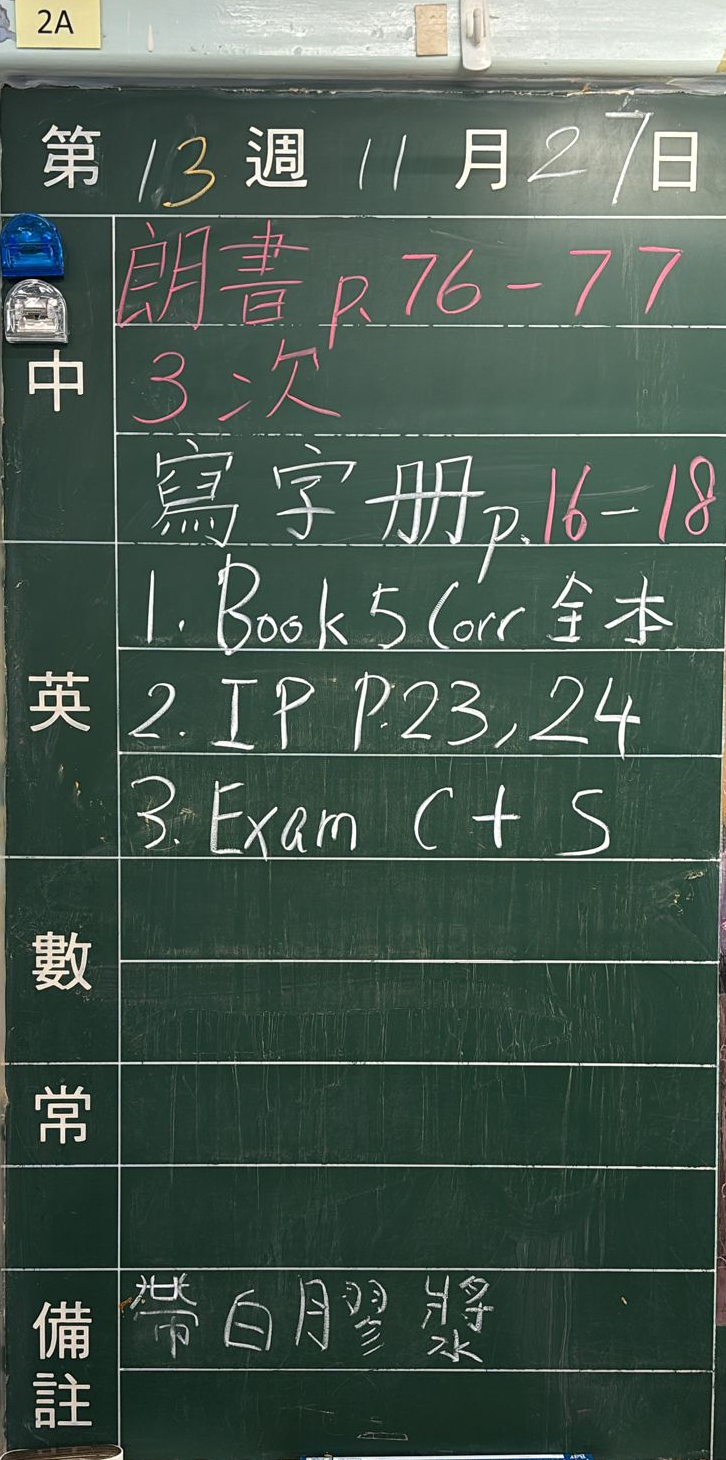 2A
第 13 週 11 月 27 日
中
朗書 p. 76-77
3次
寫字册 p. 16-18
英
1. Book 5 Corr 全本
2. IP P.23, 24
3. Exam C + S
數
常
備註
帶白膠漿